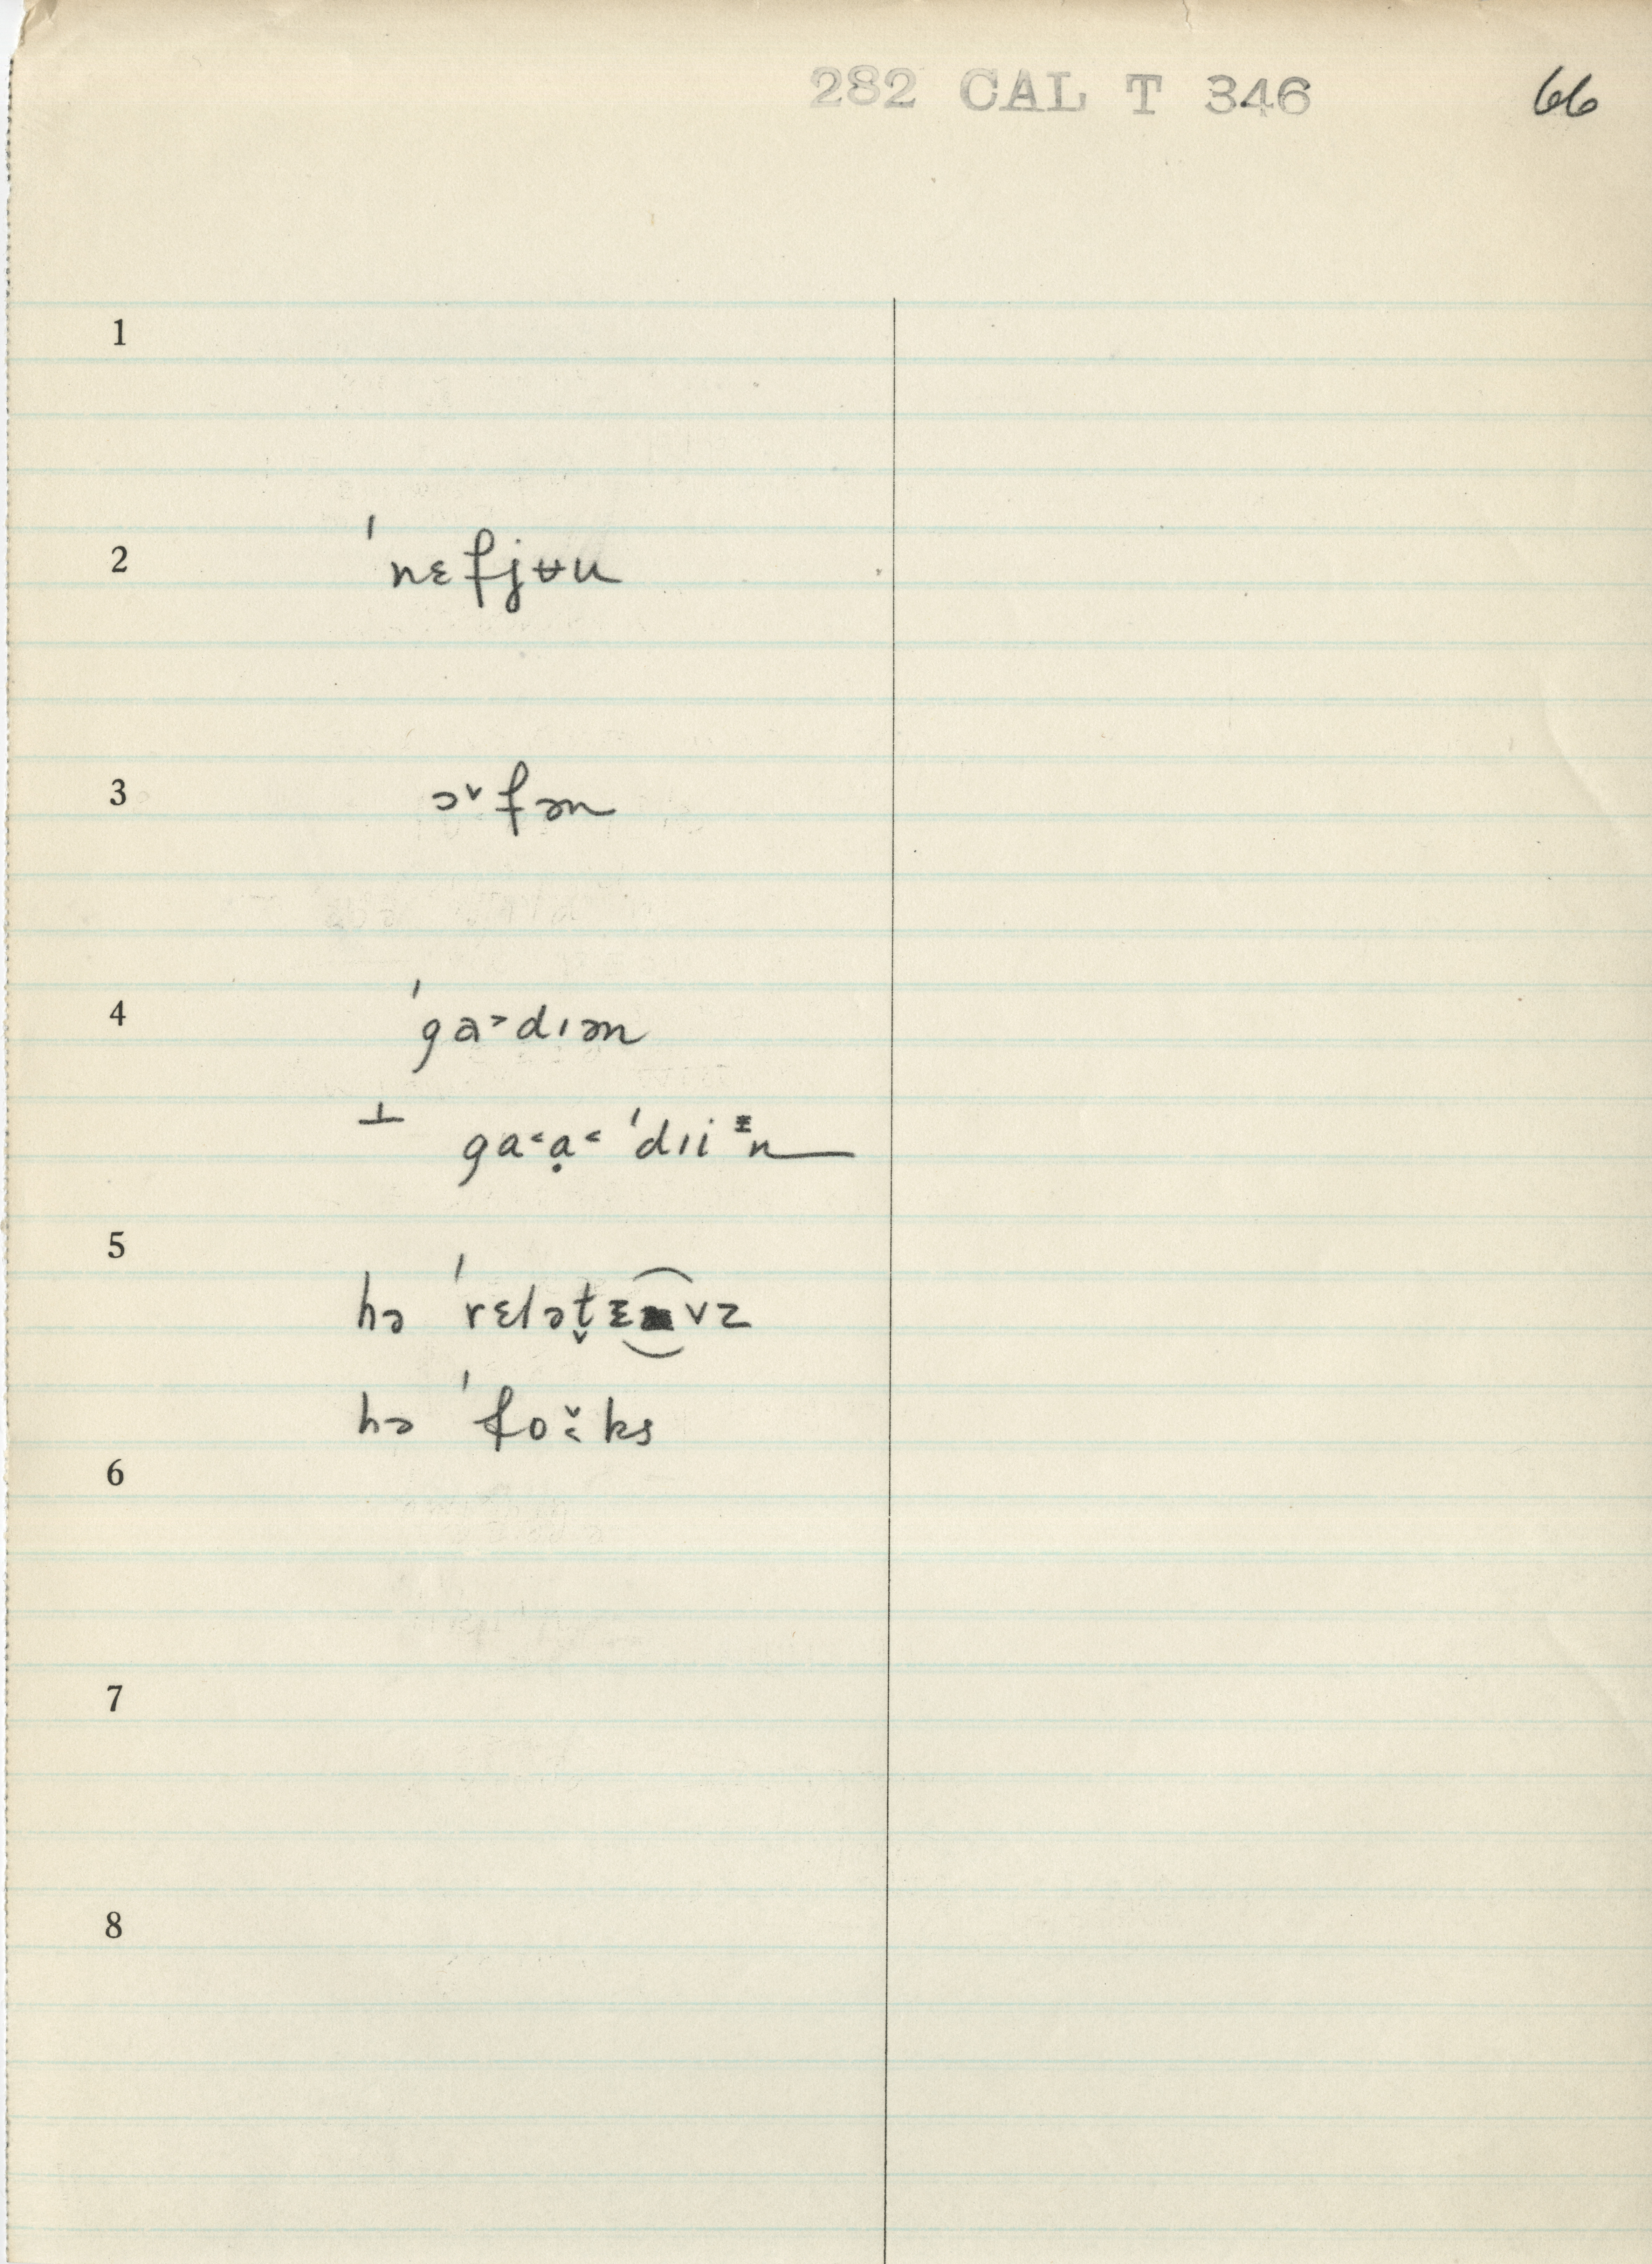 282 CAL T 346 66
1
2 ˈnɛfjʉu
3 ɔ˅fən
4 ˈga˃dɪən
⊥ ga˂ạ˂ ˈdɪiᵻn
5
hə ˈrɛlət̬ᵻvz
hə ˈfo˅˂ks
6
7
8